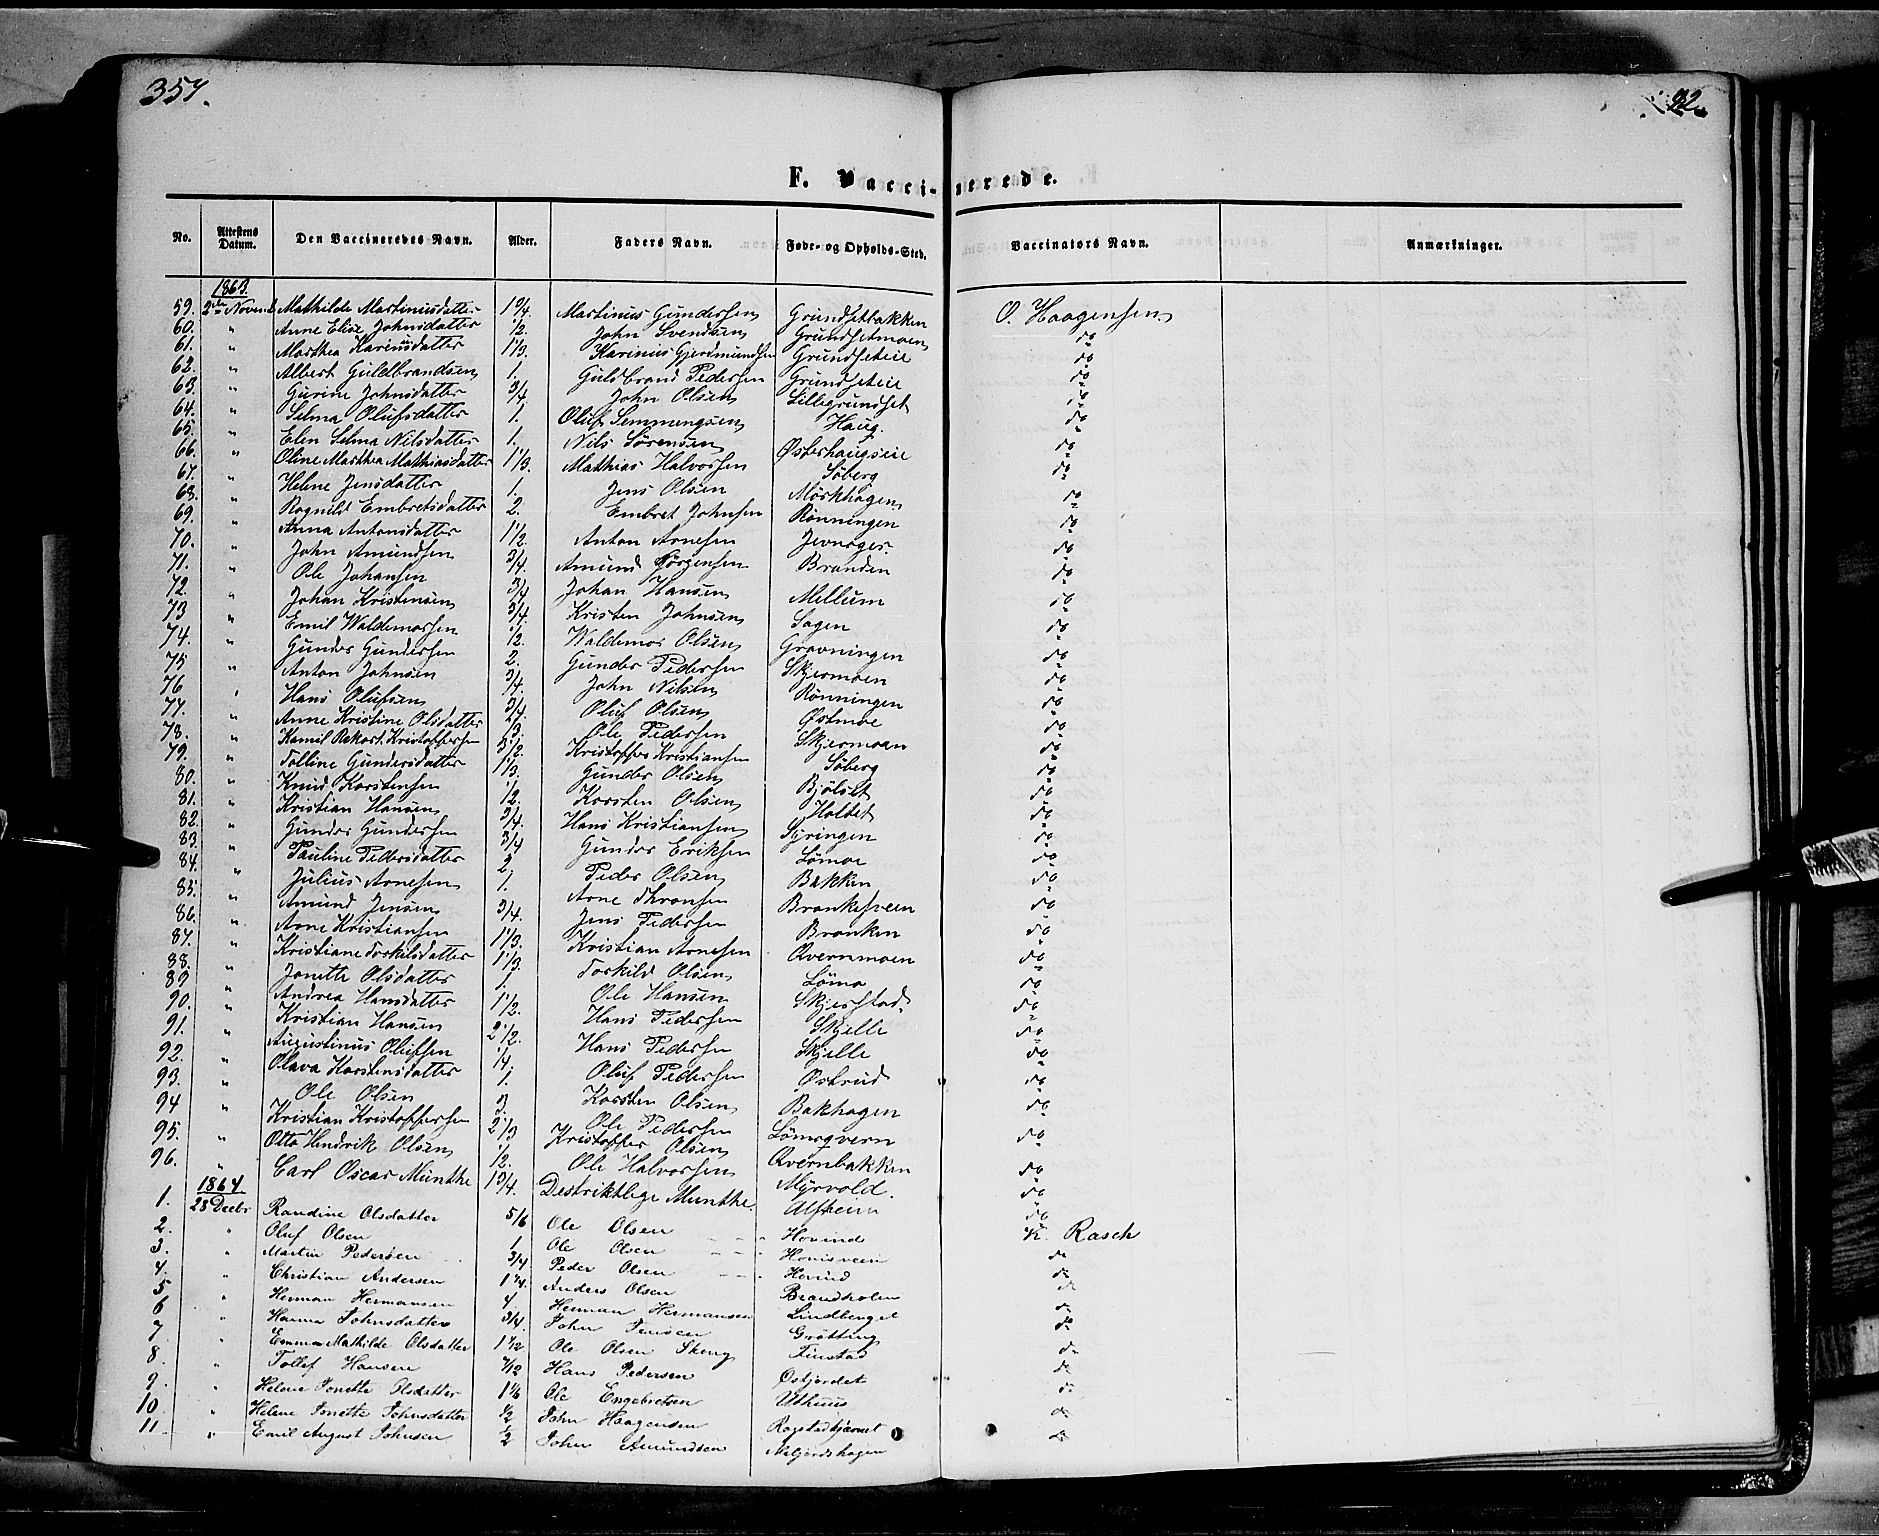 357.
F. Vaccinerede.
No. Attestens Datum. Den Vaccineredes Navn. Alder. Faders Navn. Føde- og Opholds-Sted. Vaccinators Navn. Anmærkninger.
1863.
59. 2den Novemb Mathilde Martiniusdatter 1 3/4. Martinus Gundersen Grundsetbakken O. Haagensen
60. " Anne Elise Johnsdatter 1/2. John Svendsen Grundsetmoen do
61. " Marthea Kariniusdatter 1 1/3. Karinius Gjerdmundsen Grundseteie do
62. " Albert Guldbrandsen 1. Guldbrand Pedersen Grundseteie do
63. " Gurine Johnsdatter 3/4. John Olsen Lillegrundset do
64. " Selma Olufsdatter 1. Oluf Semmengsen Haug. do
65. " Elen Selma Nilsdatter 1. Nils Sørensen Østerhaugseie do
66. " Oline Marthea Mathiasdatter 1 1/3. Mathias Halvorsen Søberg do
67. " Helene Jensdatter 1. Jens Olsen Mørkhagen do
68. " Ragnild Embretsdatter 2. Embret Johnsen Rønningen do
69. " Anna Antonsdatter 1 1/2. Anton Arnesen Jevnager. do
70. " John Amundsen 3/4. Amund Jørgensen Branden do
71. " Ole Johansen 3/4 Johan Hansen Mellum do
72. " Johan Kristensen 3/4. Kristen Johnsen Sagen do
73 " Emil Waldemarsen 1/2. Waldemar Olsen Gravningen do
74. " Gunder Gundersen 2. Gunder Pedersen Skjermoen do
75 " Anton Johnsen 3/4. John Nilsen Rønningen do
76 " Hans Olufsen 3/4. Oluf Olsen Østmoe do
77. " Anne Kristine Olsdatter 3. Ole Pedersen Skjermoen do
78. " Kamil Rekart Kristoffersen 3 1/2. Kristoffer Kristiansen Søberg do
79. " Tolline Gundersdatter 1 1/3. Gunder Olsen Bjølset do
80. " Knud Karstensen 1/2. Karsten Olsen Holtet do
81. " Kristian Hansen 3/4. Hans Kristiansen Syringen do
82. " Gunder Gundersen 3/4 Gunder Eriksen Lømoe do
83. " Pauline Pedersdatter 2. Peder Olsen Bakken do
84. " Julius Arnesen 1. Arne Thronsen do
85. " Amund Jensen 3/4. Jens Pedersen Branken do
86. " Arne Kristiansen 1 1/3. Kristian Arnesen Qvernmoen do
87. " Kristiane Torkilsdatter 1 1/3. Torkild Olsen Lømo do
88. " Janette Olsdatter 1. Ole Hansen Skjerstad. do
89 " Andrea Hansdatter 1 1/2. Hans Pedersen Skjelle do
90. " Kristian Hansen 2 1/2. Hans Pedersen Skjelle do
91. " Augustinus Olufsen 1/4. Oluf Pedersen Østrud do
92. " Olava Karstensdatter 1. Karsten Olsen Bakhagen do
93. " Ole Olsen 3. Ole Pedersen Lømoqvern do
94 " Kristian Kristoffersen 2 1/3 Kristoffer Olsen Qvernbakken do
95. " Otto Hendrik Olsen 1/2. Ole Halvorsen Myrvold. do
96. " Carl Oscar Munthe 1 3/4. Destriktlæge Munthe. Alfheim do
1864
1. 28 Decbr Randine Olsdatter 5/6 Ole Olsen Hovind K. Rasch
2. " Oluf Olsen 1 Ole Olsen do
3. " Martin Pedersen 3/4 Peder Olsen Hovind do
4. " Christian Andersen 1 1/4. Anders Olsen Brandholen do
5 " Herman Hermansen 4. Herman Hermansen Lindberget do
6 " Hanna Johnsdatter 3/4. John Jensen Grøtting do
7 " Emma Mathilde Olsdatter 1 1/2 Ole Olsen Skeng Finstad do
8 " Tollef Hansen 7/12 Hans Pedersen Østjordet do
9. " Helene Jonette Olsdatter 1 1/6 Ole Engebretsen Uthuus do
10 " Helene Jonette Johnsdatter 1/2 John Haagensen Rogstadkjærnet do
11 " Emil August Johnsen 1/2 John Amundsen do